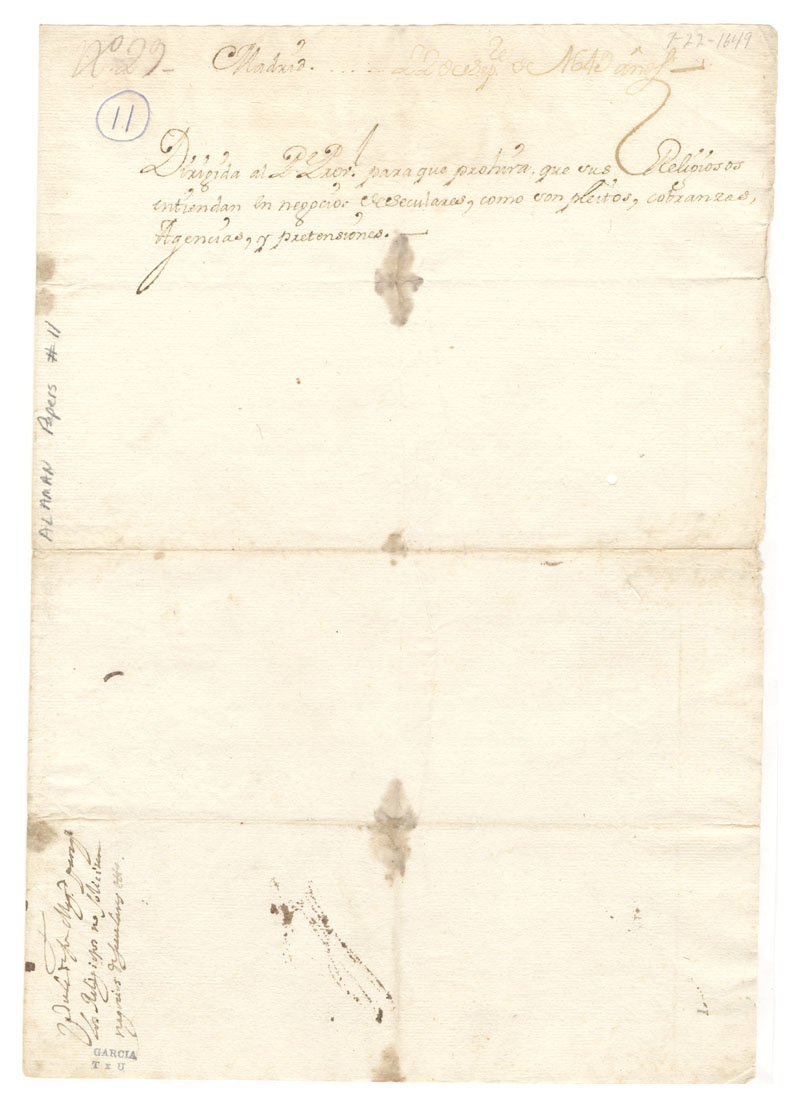 No. 29 Madrid. 22 de de 1649 años
7-22-1649
11
Dirigida al Pe. Pror. para que prohiva, que sus Religiosos
entiendan en negocios Seculares, como son pleitos, cobranzas,
Agencias, y pretensiones.
ALAMAN Papers #11
Cedula de su Magd. para q
los Religiosos no soliciten
negocios de seculares
GARCIA
T x U